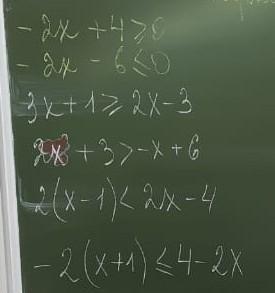 -2x + 4 ≥ 0
-2x - 6 ≤ 0
3x + 1 ≥ 2x - 3
2x + 3 > -x + 6
2(x - 1) < 2x - 4
-2(x + 1) ≤ 4 - 2x